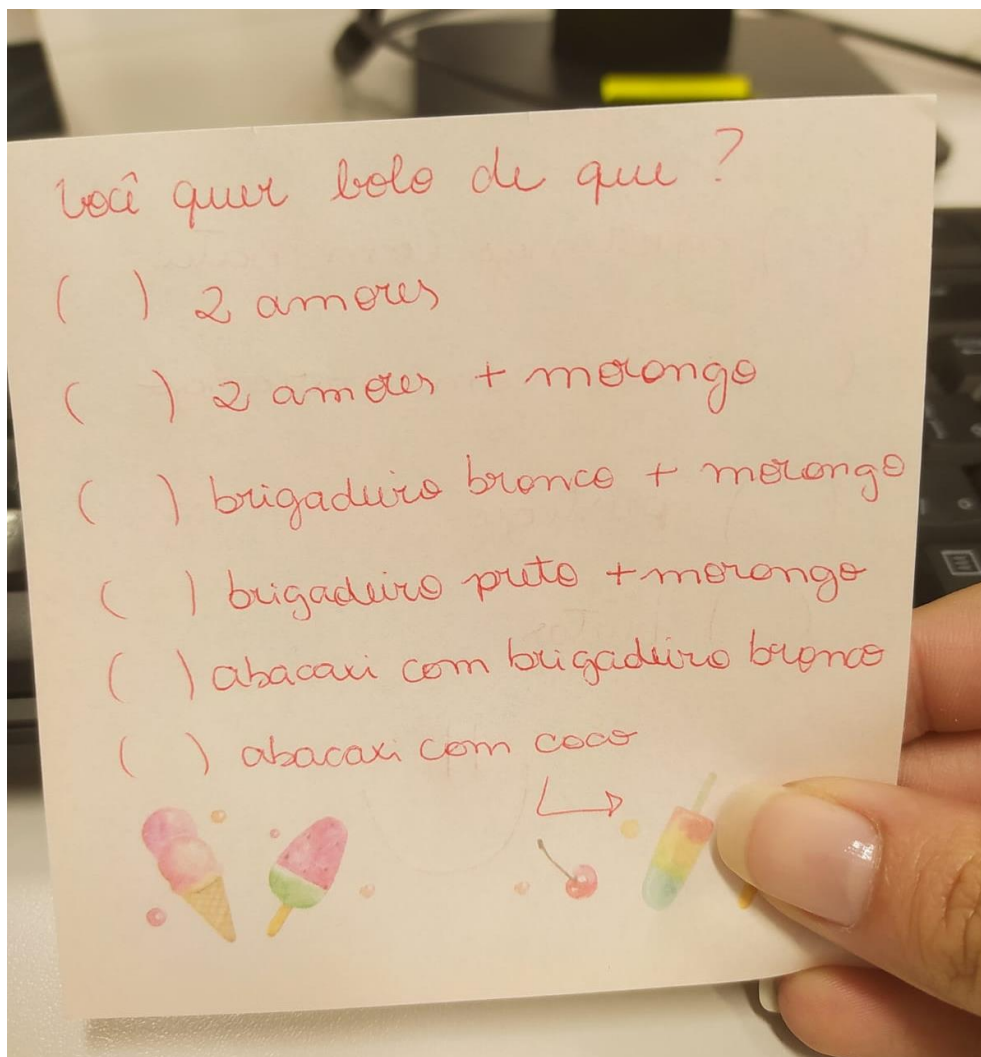 Você quer bolo de que ?
( ) 2 amores
( ) 2 amores + morango
( ) brigadeiro branco + morango
( ) brigadeiro preto + morango
( ) abacaxi com brigadeiro branco
( ) abacaxi com coco